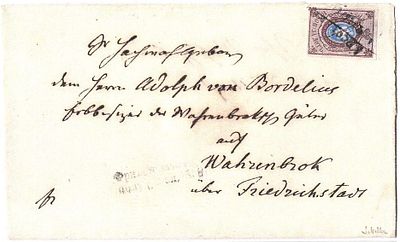 Sr Hochwohlgeboren
dem Herrn Adolph von Bordelius
Erbbesizer der Wahrenbrokschen Güter
auf
Wahrenbrok
über Friedrichstadt
fr